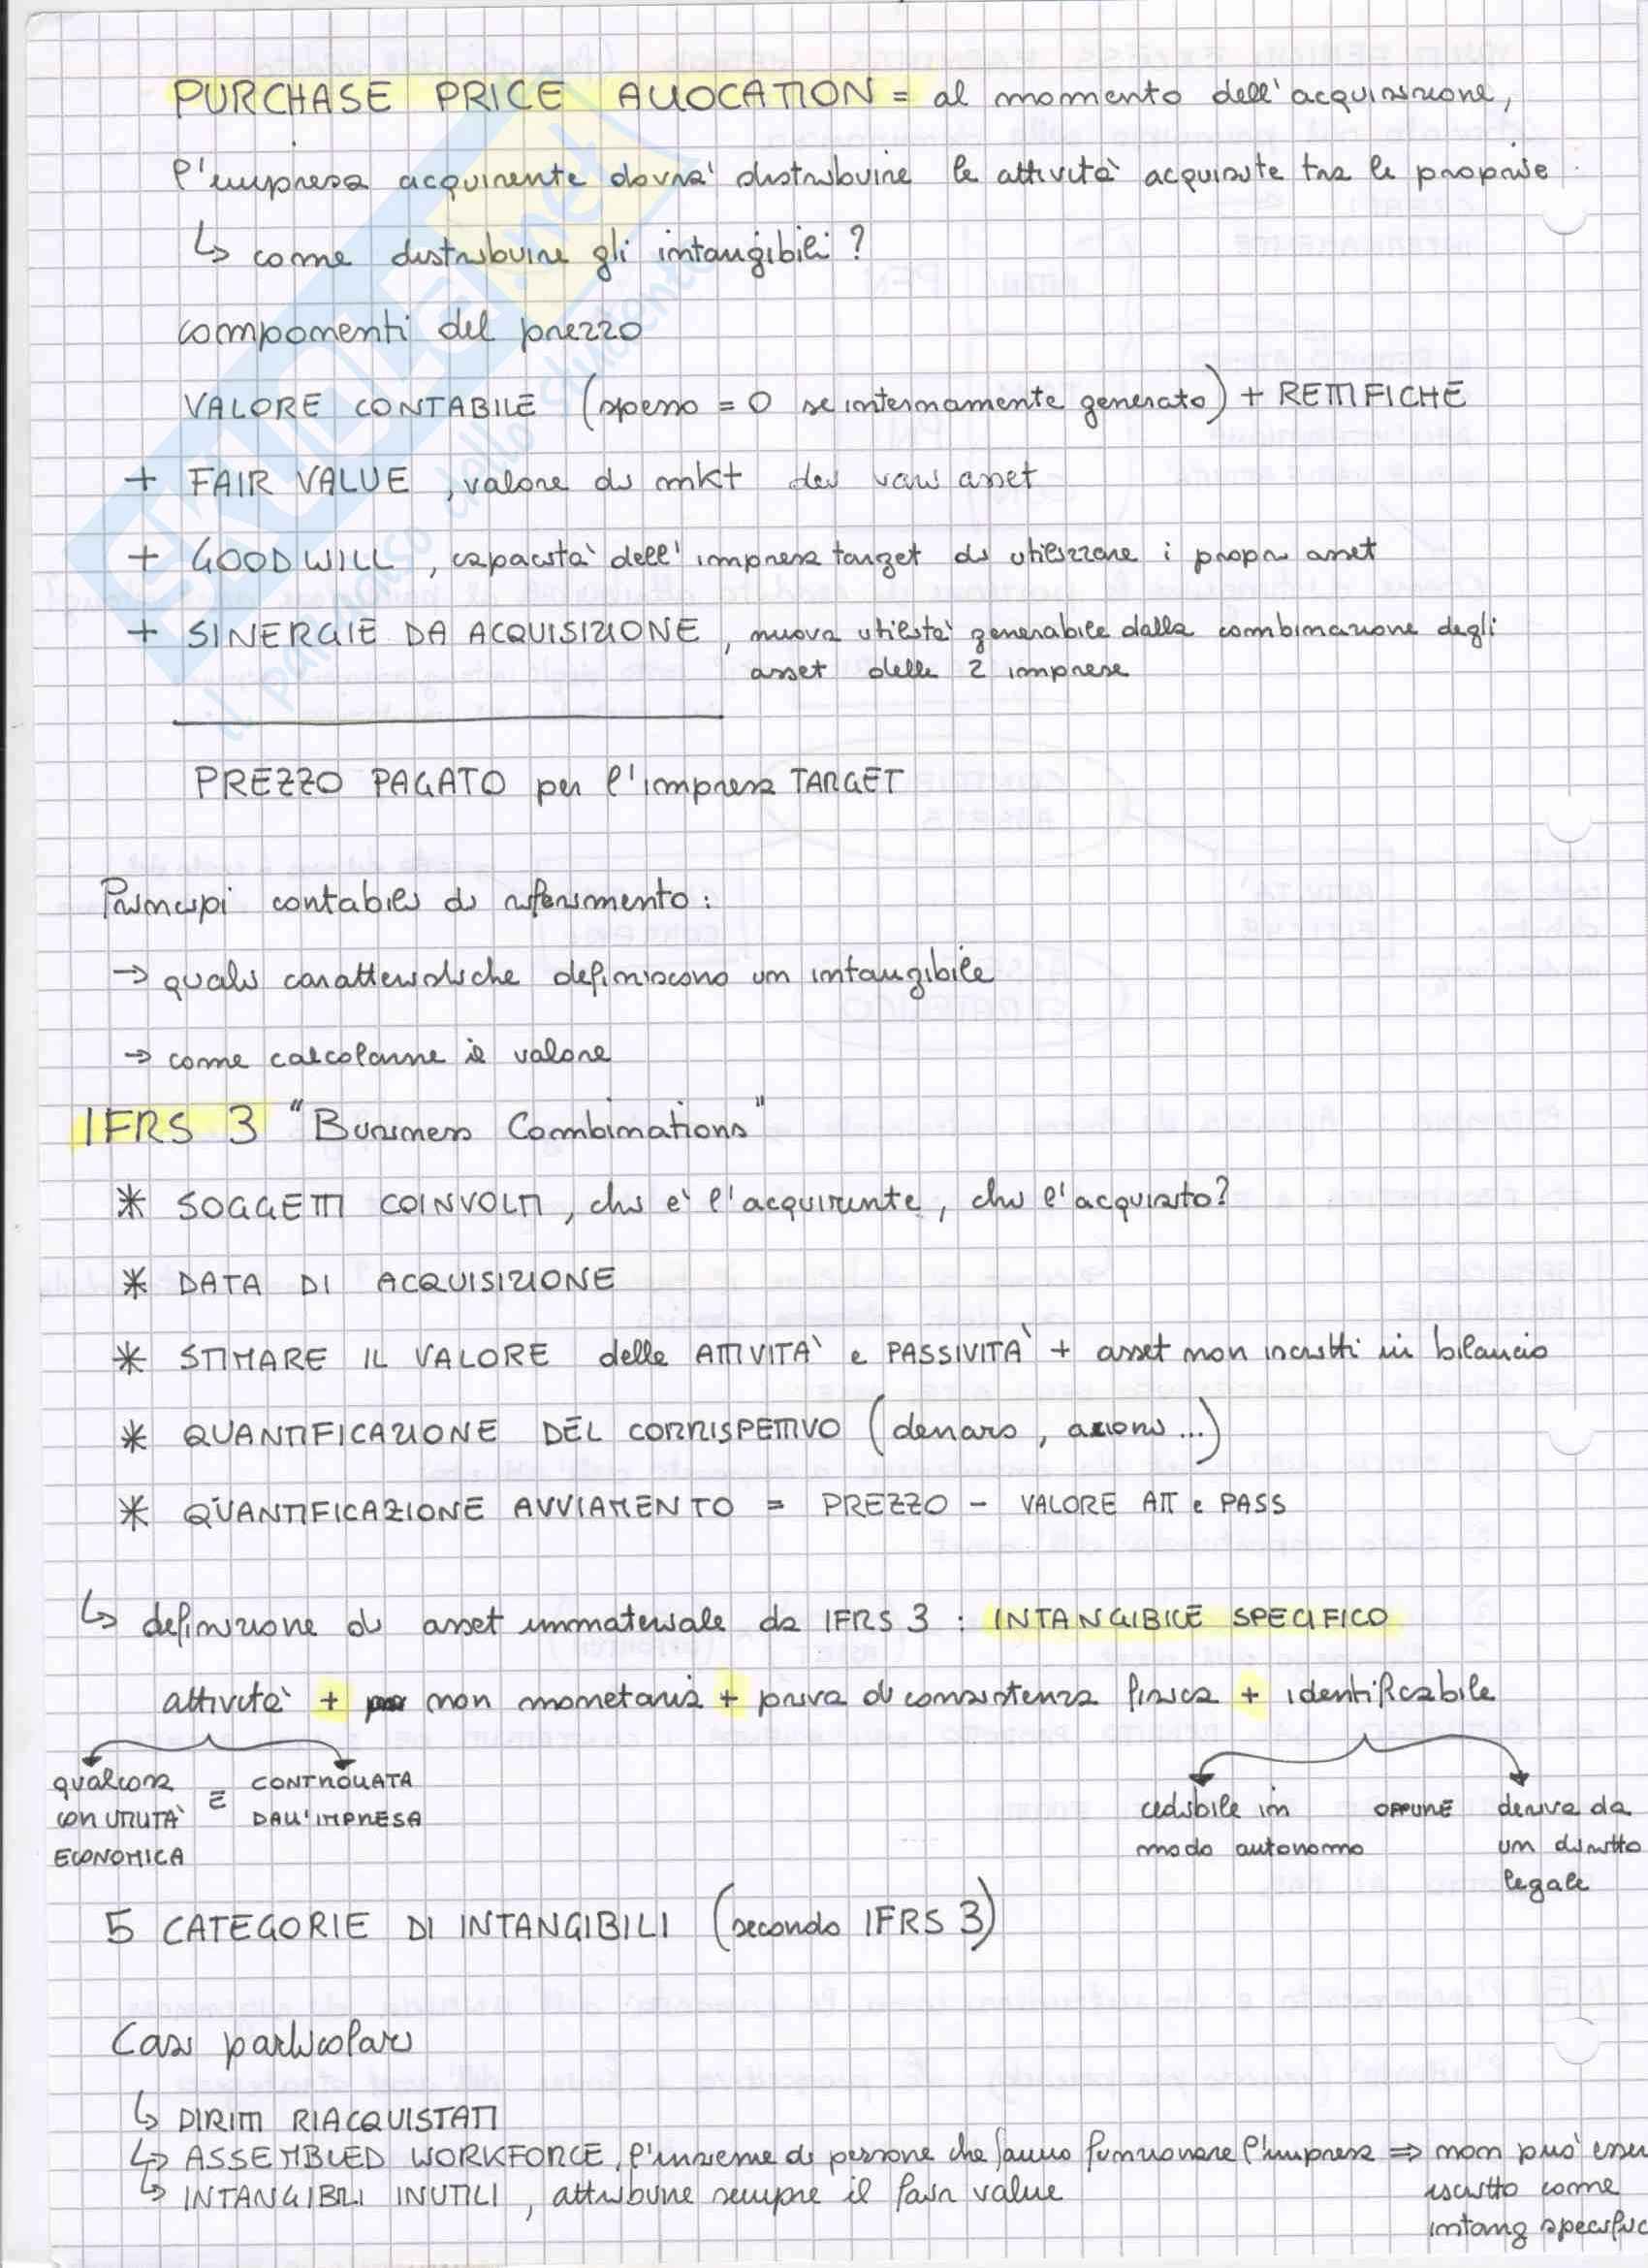 PURCHASE PRICE ALLOCATION = al momento dell'acquisizione,
l'impresa acquirente dovrà distribuire le attività acquisite tra le proprie
↳ come distribuire gli intangibili?
componenti del prezzo
VALORE CONTABILE (spesso = 0 se internamente generato) + RETTIFICHE
+ FAIR VALUE, valore di mkt dei vari asset
+ GOODWILL, capacità dell'impresa target di utilizzare i propri asset
+ SINERGIE DA ACQUISIZIONE, nuova utilità generabile dalla combinazione degli
asset delle 2 imprese
PREZZO PAGATO per l'impresa TARGET
Principi contabili di riferimento:
→ quali caratteristiche definiscono un intangibile
→ come calcolarne il valore
IFRS 3 "Business Combinations"
* SOGGETTI COINVOLTI, chi è l'acquirente, chi l'acquisito?
* DATA DI ACQUISIZIONE
* STIMARE IL VALORE delle ATTIVITÀ e PASSIVITÀ + asset non iscritti in bilancio
* QUANTIFICAZIONE DEL CORRISPETTIVO (denaro, azioni...)
* QUANTIFICAZIONE AVVIAMENTO = PREZZO - VALORE ATT e PASS
↳ definizione di asset immateriale da IFRS 3 : INTANGIBILE SPECIFICO
attività + non monetaria + priva di consistenza fisica + identificabile
qualcosa E CONTROLLATA cedibile in OPPURE deriva da
con UTILITÀ DALL'IMPRESA modo autonomo un diritto
ECONOMICA legale
5 CATEGORIE DI INTANGIBILI (secondo IFRS 3)
Casi particolari
↳ DIRITTI RIACQUISTATI
↳ ASSEMBLED WORKFORCE, l'insieme di persone che fanno funzionare l'impresa ⇒ non può esser
↳ INTANGIBILI INUTILI, attribuire sempre il fair value iscritto come
intang specific